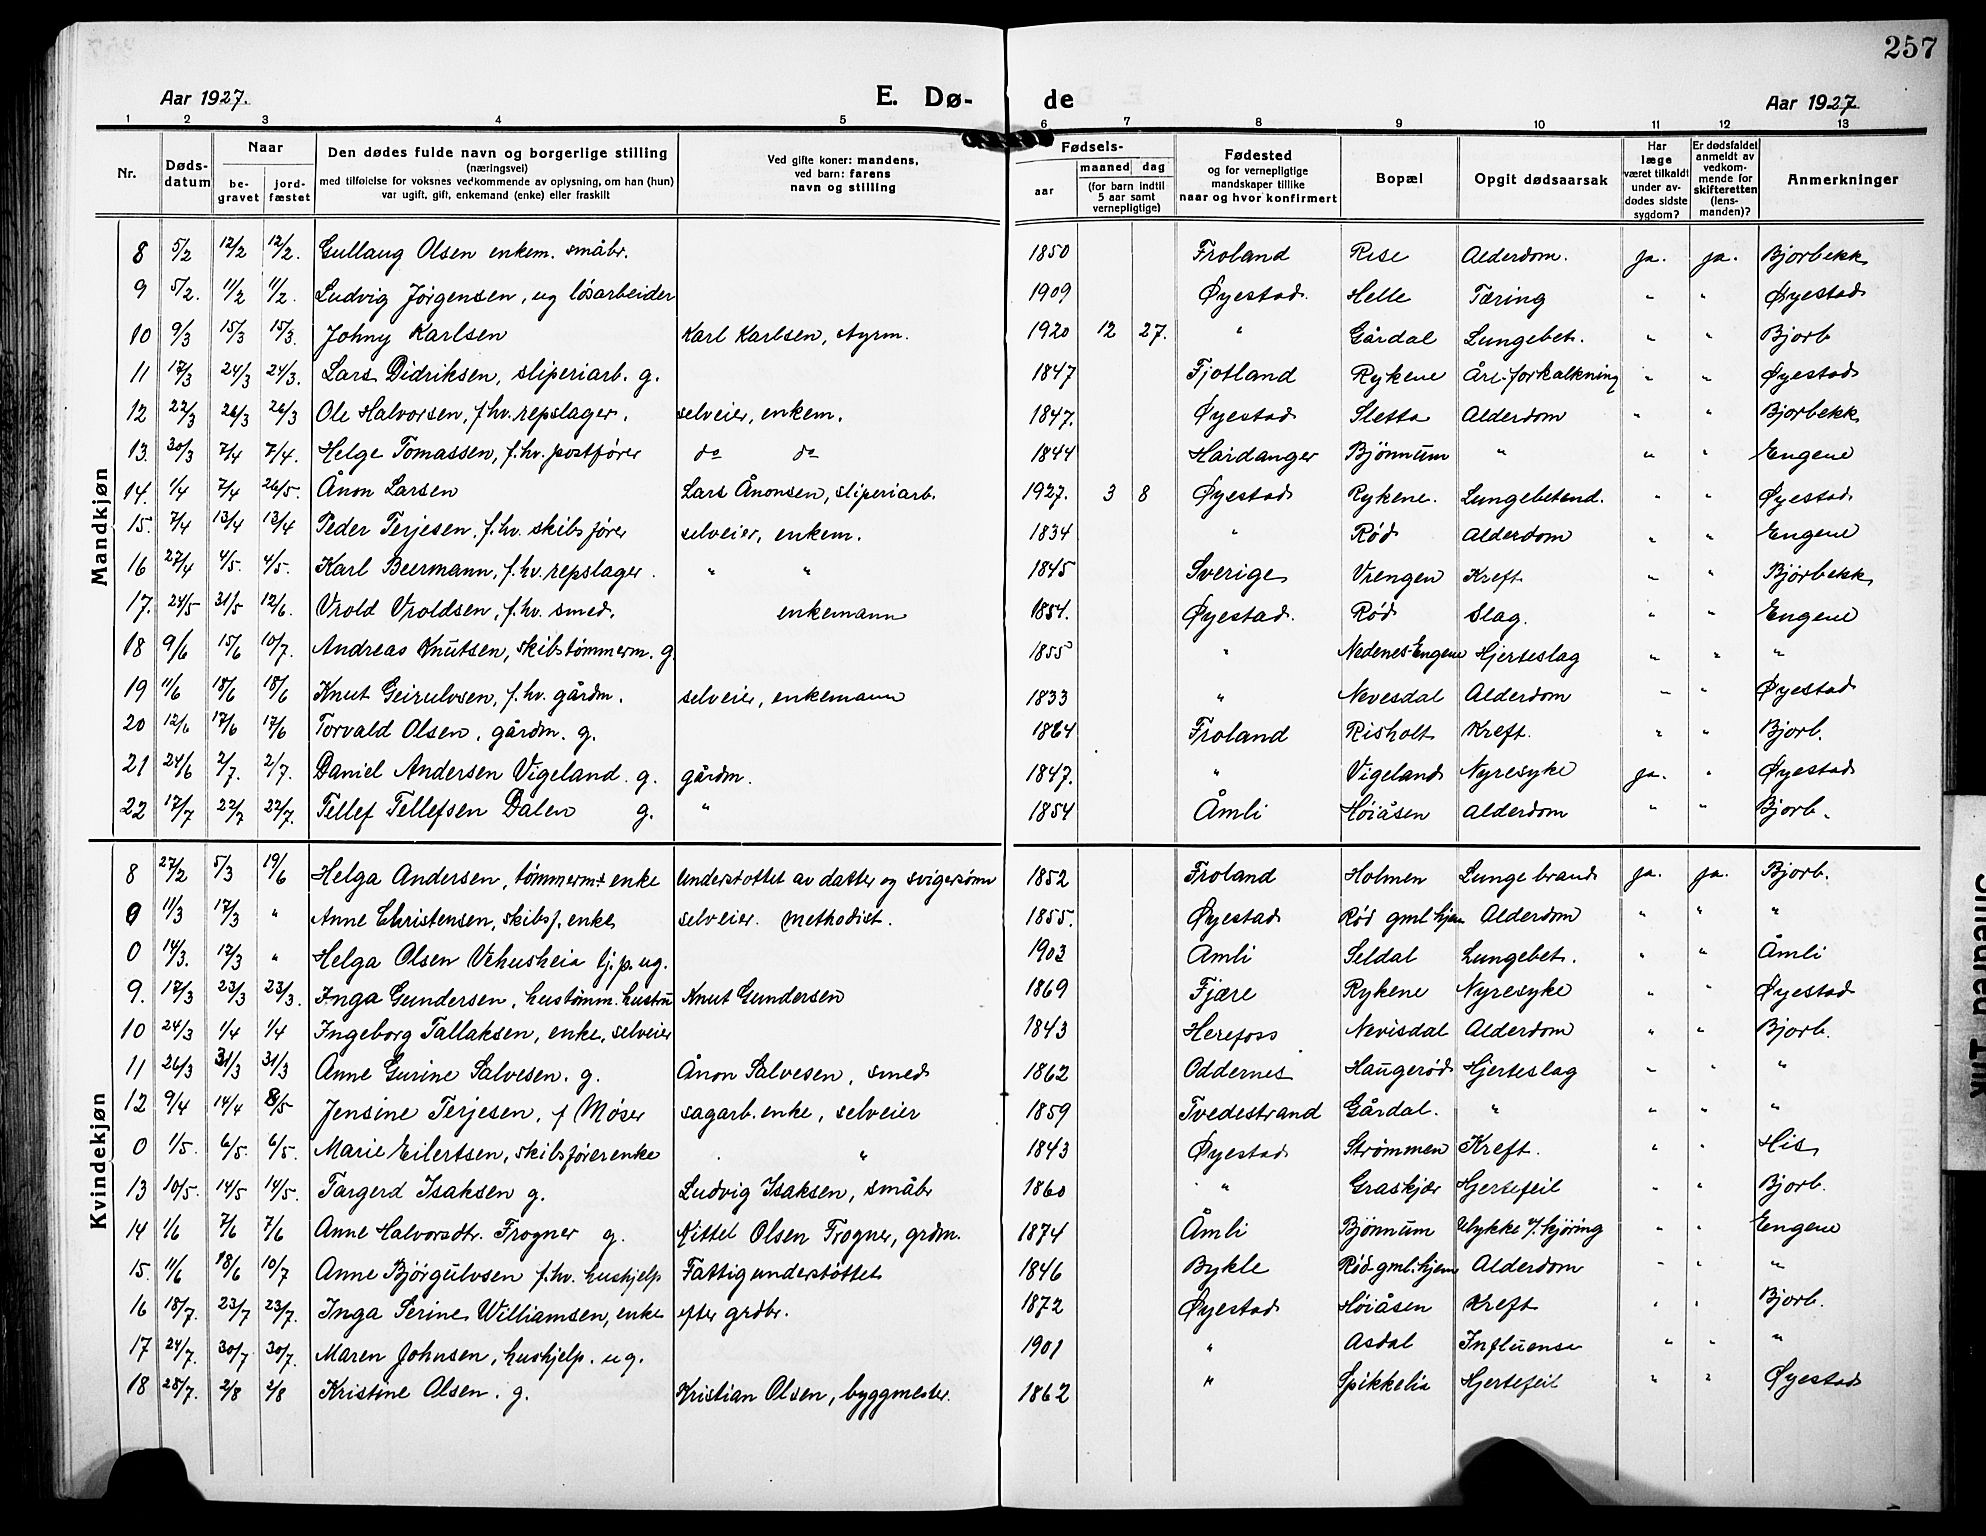 257
Aar 1927. E. Dø- de Aar 1927.
1 2 3 4 5 6 7 8 9 10 11 12 13
Nr. Døds-datum Naar be-gravet jord-fæstet Den dødes fulde navn og borgerlige stilling (næringsvei) med tilføielse for voksnes vedkommende av oplysning, om han (hun) var ugift, gift, enkemand (enke) eller fraskilt Ved gifte koner: mandens, ved barn: farens navn og stilling Fødsels- aar maaned dag (for barn indtil 5 aar samt vernepligtige) Fødested og for vernepligtige mandskaper tillike naar og hvor konfirmert Bopæl Opgit dødsaarsak Har læge været tilkaldt under av-dødes sidste sygdom? Er dødsfaldet anmeldt av vedkom-mende for skifteretten (lens-manden)? Anmerkninger
Mandkjøn
8 5/2 12/2 12/2. Gullaug Olsen enkem. småbr. 1850 Froland Rise Alderdom. ja. ja. Bjorbekk
9 5/2. 11/2 11/2. Ludvig Jørgensen, ug løsarbeider 1909 Øyestad. Helle Tæring " " Øyestad
10 9/3 15/3 15/3. Johny Karlsen Karl Karlsen, styrm. 1920 12 27. " Gårdal Lungebet. " " Bjorb
11 17/3 24/3 24/3. Lars Didriksen, sliperiarb. g. 1847 Fjotland Rykene Åre-forkalkning " " Øyestad
12 22/3 26/3 26/3 Ole Halvorsen, f.hv. repslager. selveier, enkem. 1847. Øyestad Sletta Alderdom " " Bjorbekk
13. 30/3 7/4 7/4. Helge Tomassen, f.hv. postfører do do 1844 Hardanger Bjönnum " " " Engene
14. 1/4 7/4 26/5. Ånon Larsen Lars Ånonsen, sliperiarb. 1927. 3 8 Øyestad Rykene. Lungebetend. " " Øyestad
15. 7/4 13/4 13/4 Peder Terjesen, f.hv. skibsfører selveier, enkem. 1834 " Rød Alderdom " " Engene
16 27/4 4/5. 4/5. Karl Beermann, f.hv. repslager. " " 1845 Sverige Vrengen Kreft " " Bjorbekk
17. 24/5 31/5 12/6. Vrold Vroldsen, f.hv. smed. enkemann 1854. Øyestad. Rød Slag. " " Engene
18 9/6 15/6 10/7. Andreas Knutsen, skibstømmerm. g. 1855 " Nedenes-Engene Hjerteslag " " "
19 11/6 18/6 18/6 Knut Geirulvsen, f.hv. gårdm. selveier, enkemann 1833 " Nevesdal Alderdom " " Øyestad
20 12/6 17/6 17/6 Torvald Olsen, gårdm. g. 1864 Froland Risholt Kreft. " " Bjorb.
21 24/6 2/7. 2/7. Daniel Andersen Vigeland. g. gårdm. 1847. " Vigeland Nyresyke ja. " Øyestad
22 17/7 22/7 22/7. Tellef Tellefsen Dalen g. " 1854 Åmli Høiåsen Alderdom " " Bjorb.
Kvindekjøn
8 27/2 5/3 19/6 Helga Andersen, tømmerms enke Understøttet av datter og svigersønn 1852 Froland Holmen Lungebrand ja. ja. Bjorb.
9 11/3 17/3 " Anne Christensen, skibsf. enke selveier. methodist. 1855. Øyestad Rød gml. hjem Alderdom " " "
0 14/3. 17/3 " Helga Olsen Vehusheia tj. p. ug. 1903 Åmli Seldal Lungebet. " " Åmli
9. 17/3 23/3 23/3. Inga Gundersen, hustømm. hustru Knut Gundersen 1869 Fjære Rykene Nyresyke " " Øyestad
10 24/3 1/4 1/4 Ingeborg Tallaksen, enke, selveier 1843 Herefoss Nevisdal Alderdom " " Bjorb.
11 26/3 31/3 31/3 Anne Gurine Salvesen. g. Ånon Salvesen, smed 1862 Oddernes Haugerød Hjerteslag " " "
12 9/4 14/4 8/5 Jensine Terjesen, f Møser sagarb. enke, selveier 1859 Tvedestrand Gårdal. " " " "
0 1/5. 6/5. 6/5. Marie Eilertsen, skibsførerenke " 1843 Øyestad Strømmen Kreft. " " His
13 10/5. 14/5 14/5. Targerd Isaksen g. Ludvig Isaksen, småbr 1860 " Graskjær Hjertefeil " " Bjorb.
14 1/6 7/6 7/6 Anne Halvorsdtr. Frogner g. Kittel Olsen Frogner, grdm. 1874 Åmli Bjönnum Ulykke v/ kjøring " " Engene
15. 11/6 18/6 10/7 Anne Bjørgulvsen f.hv. hushjelp Fattigunderstøttet 1846 Bykle Rød gml. hjem Alderdom " " "
16 18/7. 23/7 23/7. Inga Serine Williamsen, enke efter grdbr. 1872 Øyestad Høiåsen Kreft " " Bjorb.
17 24/7. 30/7 30/7. Maren Johnsen, hushjelp. ug. 1901 " Asdal Influense " " "
18 25/7. 2/8 2/8 Kristine Olsen. g. Kristian Olsen, byggmester. 1862 " Spikkelia Hjertefeil " " Øyestad